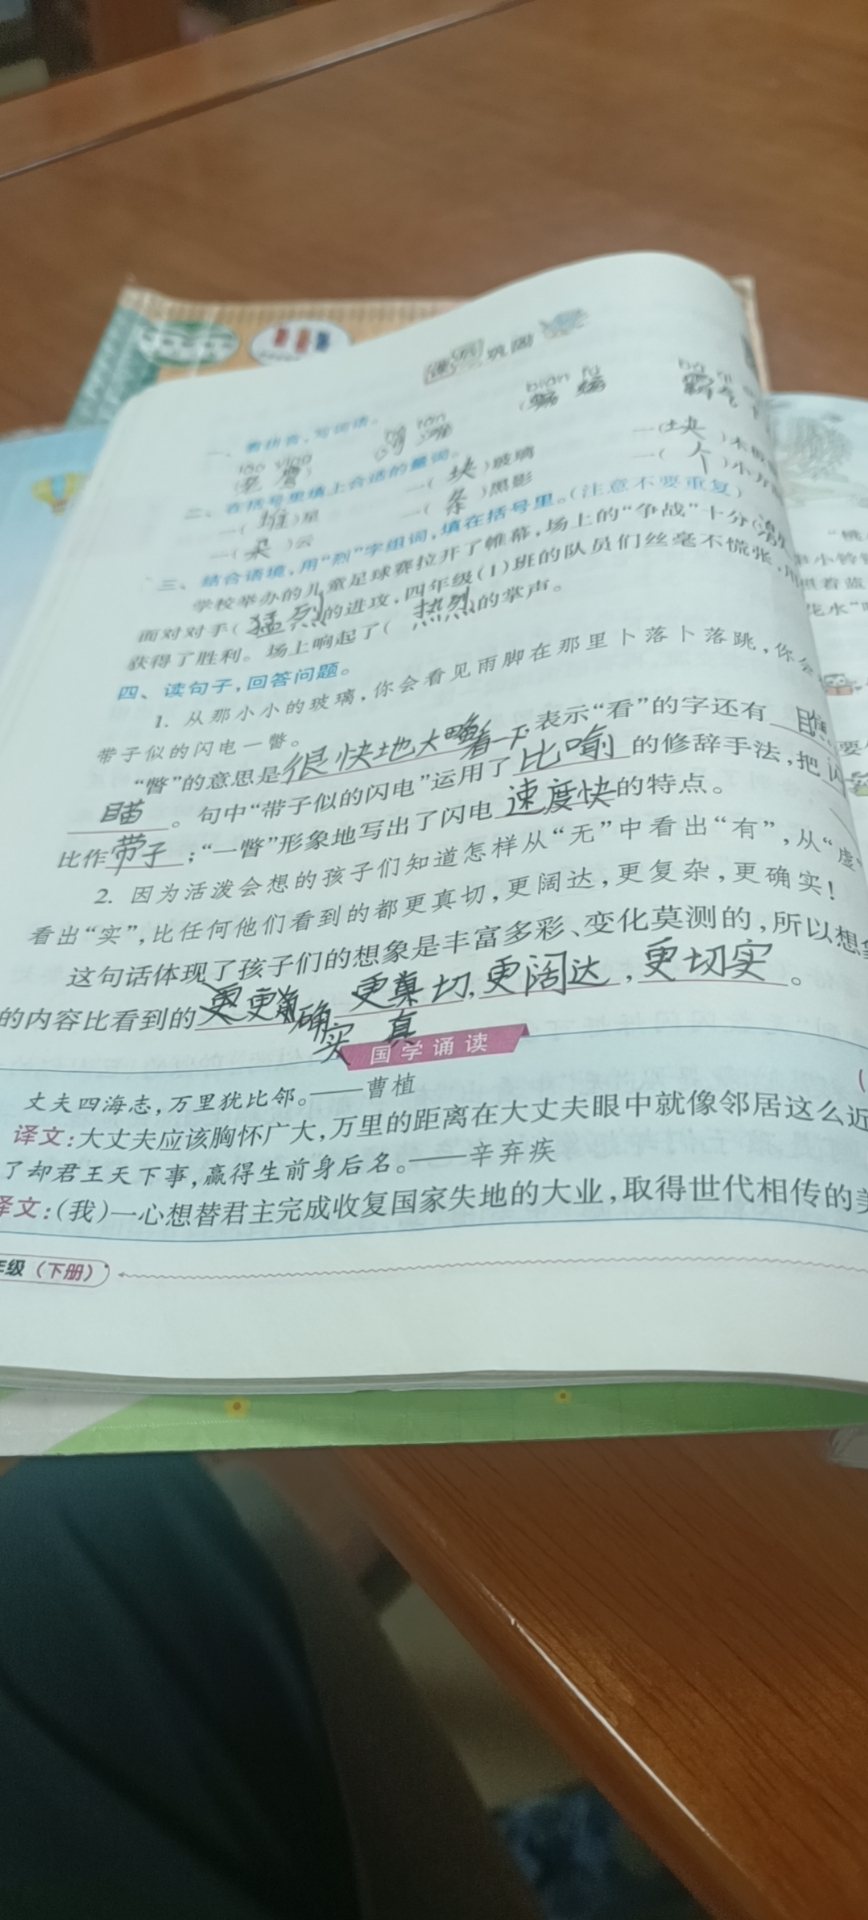 课后巩固
一、看拼音，写词语。
lǎo yīng hé tān biān fú bà qì
老鹰 河滩 蝙蝠 霸气
二、在括号里填上合适的量词。
一(堆)星 一(块)玻璃 一(块)木
一(朵)云 一(条)黑影 一(个)小方
三、结合语境，用“烈”字组词，填在括号里。(注意不要重复)
学校举办的儿童足球赛拉开了帷幕，场上的“争战”十分(激
面对对手(猛烈的进攻，四年级(1)班的队员们丝毫不慌张，用
获得了胜利。场上响起了(热烈的掌声。
四、读句子，回答问题。
1. 从那小小的玻璃，你会看见雨脚在那里卜落卜落跳，你会
带子似的闪电一瞥。
“瞥”的意思是很快地大略看一下 表示“看”的字还有
瞄。句中“带子似的闪电”运用了比喻的修辞手法，把闪
比作带子；“一瞥”形象地写出了闪电速度快的特点。
2. 因为活泼会想的孩子们知道怎样从“无”中看出“有”，从“虚”
看出“实”，比任何他们看到的都更真切，更阔达，更复杂，更确实！
这句话体现了孩子们的想象是丰富多彩、变化莫测的，所以想象
的内容比看到的更 更 确实 更真切，更阔达，更切实。
真
国学诵读
丈夫四海志，万里犹比邻。——曹植
译文：大丈夫应该胸怀广大，万里的距离在大丈夫眼中就像邻居这么近
了却君王天下事，赢得生前身后名。——辛弃疾
译文：(我)一心想替君主完成收复国家失地的大业，取得世代相传的美
年级（下册）